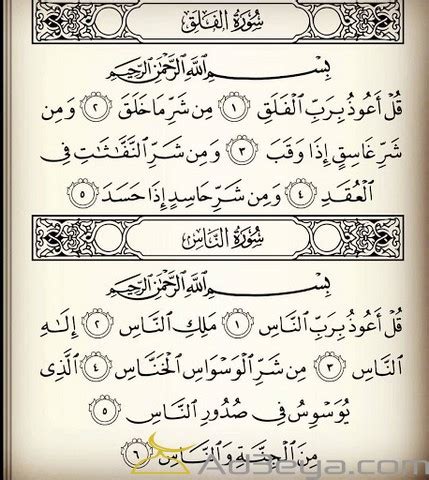 سُورَةُ الفَلَقِ
بِسْمِ اللَّهِ الرَّحْمَٰنِ الرَّحِيمِ
قُلْ أَعُوذُ بِرَبِّ الْفَلَقِ ١ مِن شَرِّ مَا خَلَقَ ٢ وَمِن
شَرِّ غَاسِقٍ إِذَا وَقَبَ ٣ وَمِن شَرِّ النَّفَّاثَاتِ فِي
الْعُقَدِ ٤ وَمِن شَرِّ حَاسِدٍ إِذَا حَسَدَ ٥
سُورَةُ النَّاسِ
بِسْمِ اللَّهِ الرَّحْمَٰنِ الرَّحِيمِ
قُلْ أَعُوذُ بِرَبِّ النَّاسِ ١ مَلِكِ النَّاسِ ٢ إِلَٰهِ
النَّاسِ ٣ مِن شَرِّ الْوَسْوَاسِ الْخَنَّاسِ ٤ الَّذِي
يُوَسْوِسُ فِي صُدُورِ النَّاسِ ٥
مِنَ الْجِنَّةِ وَالنَّاسِ ٦
Ad3eya.com